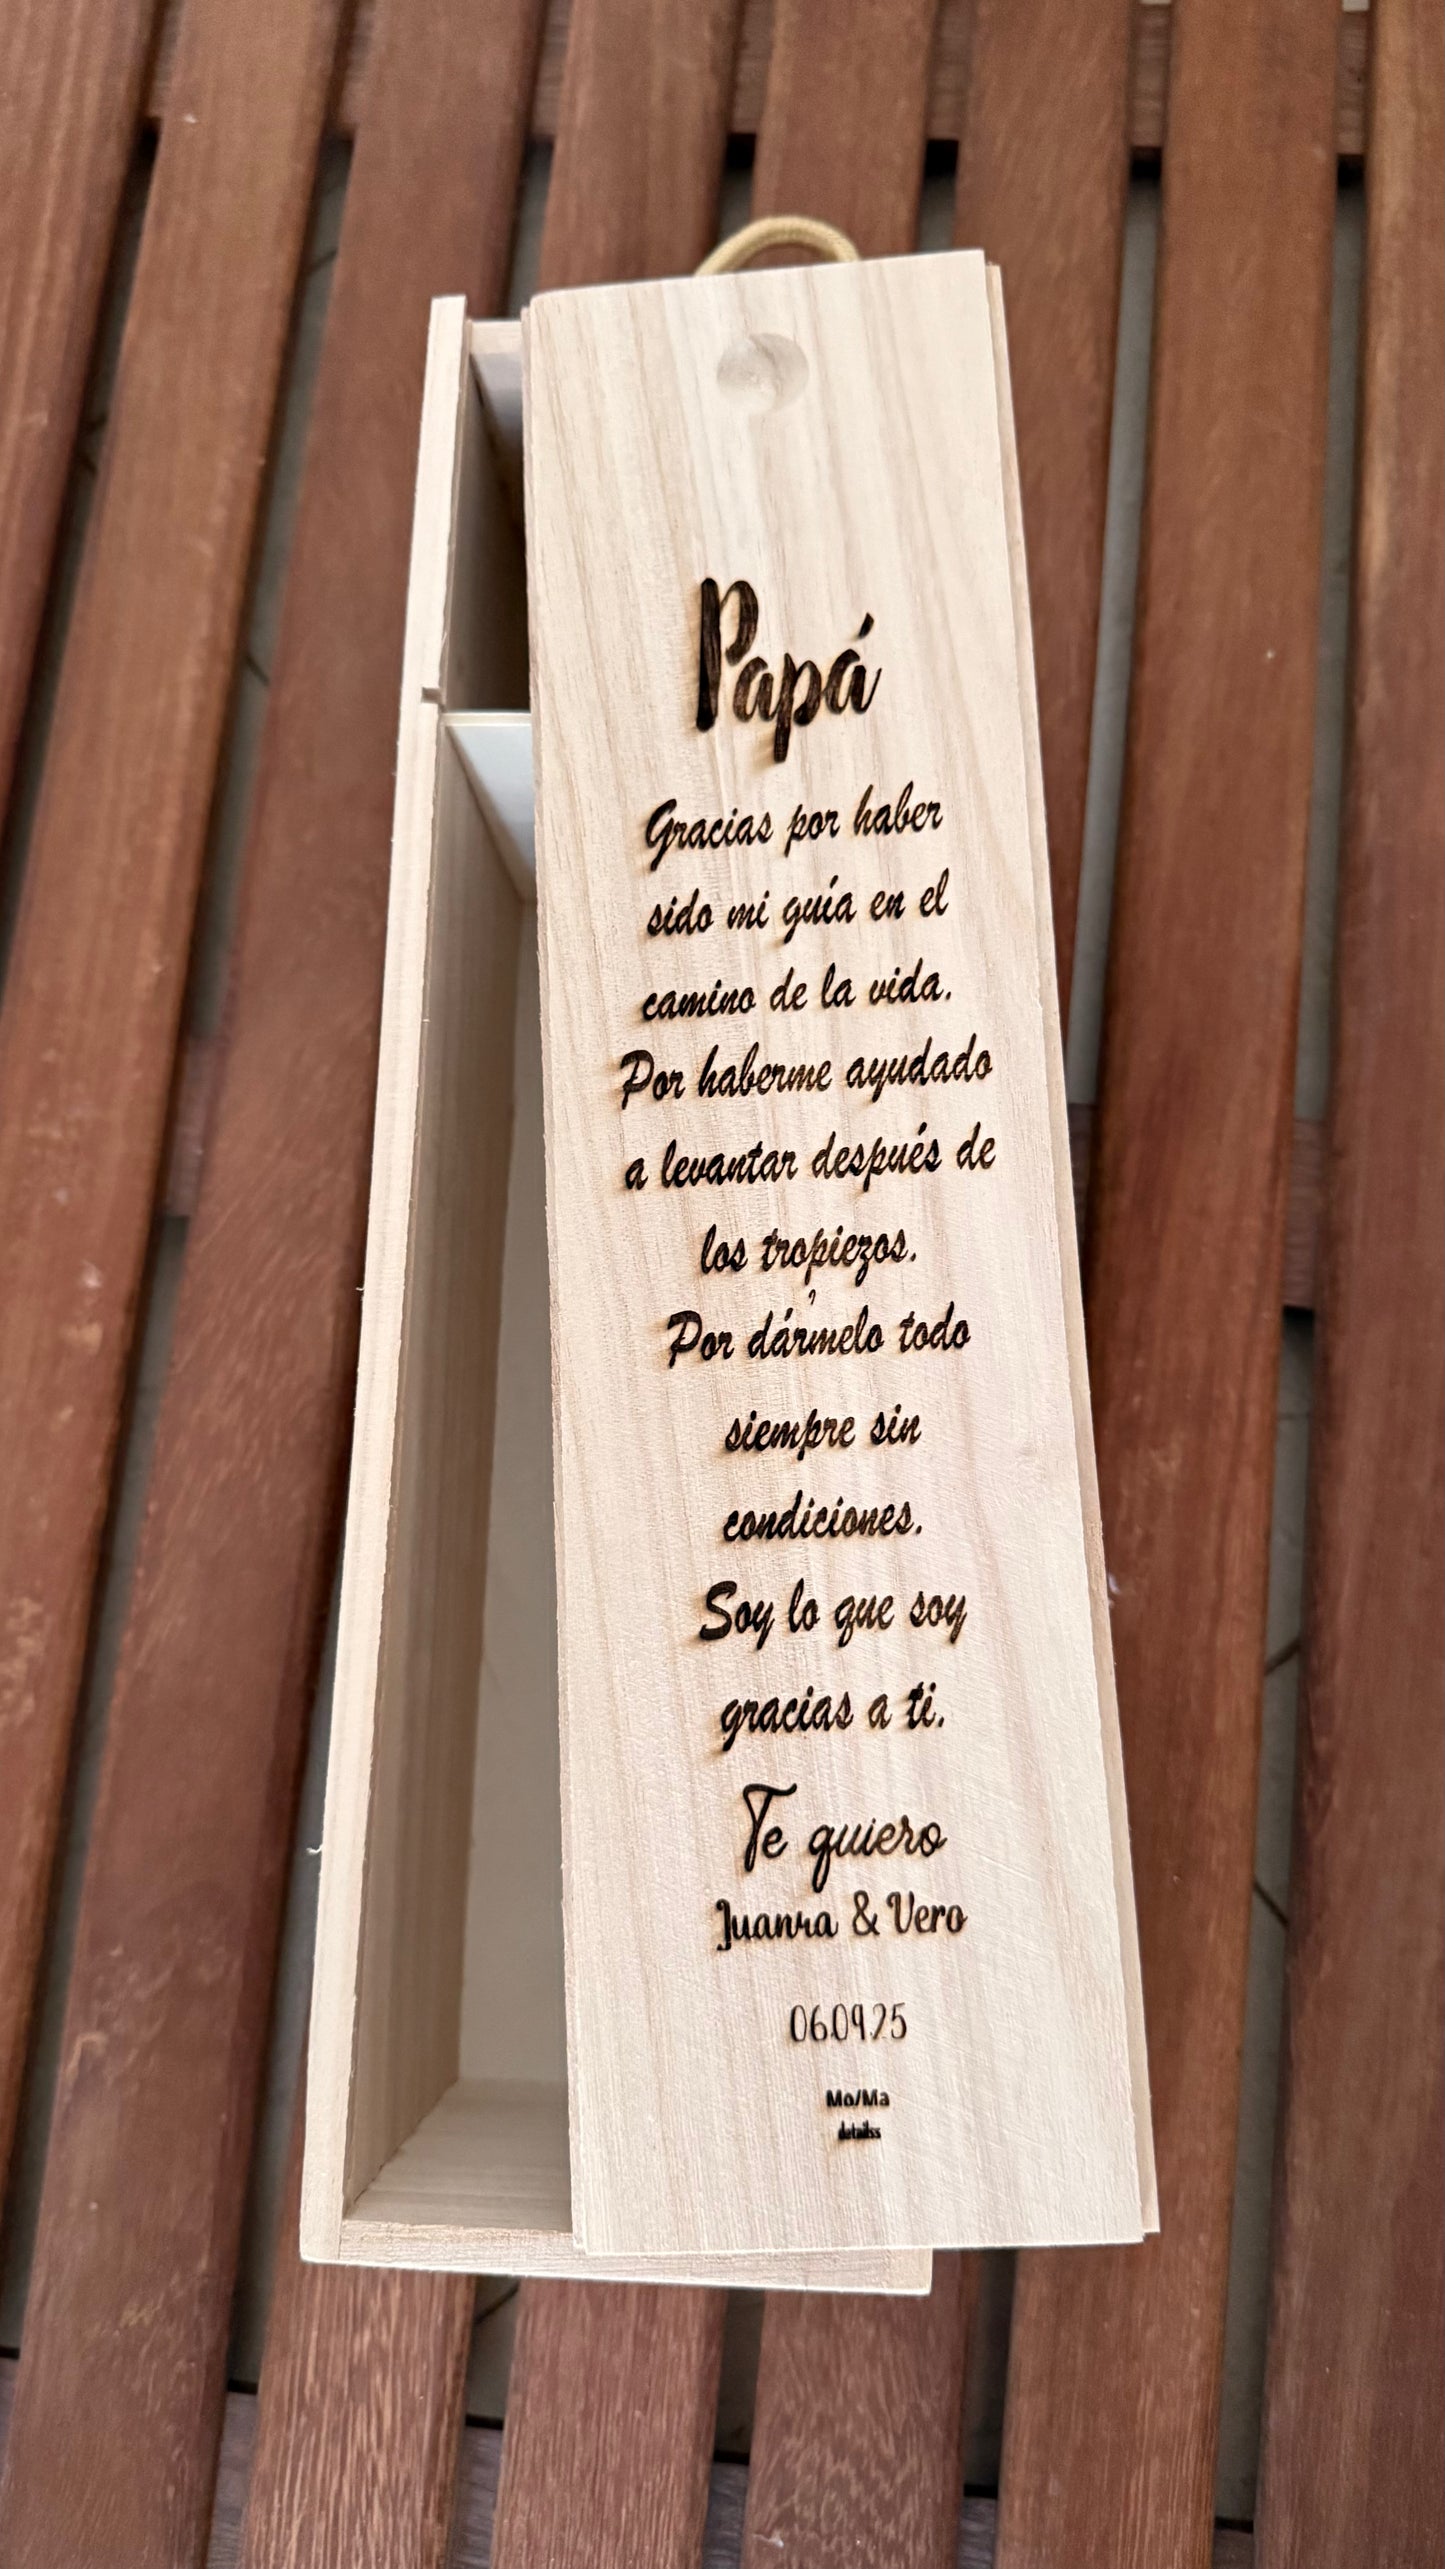 Papá
Gracias por haber
sido mi guía en el
camino de la vida.
Por haberme ayudado
a levantar después de
los tropiezos.
Por dármelo todo
siempre sin
condiciones.
Soy lo que soy
gracias a ti.
Te quiero
Juanra & Vero
06.09.25
Mo/Ma
detailss